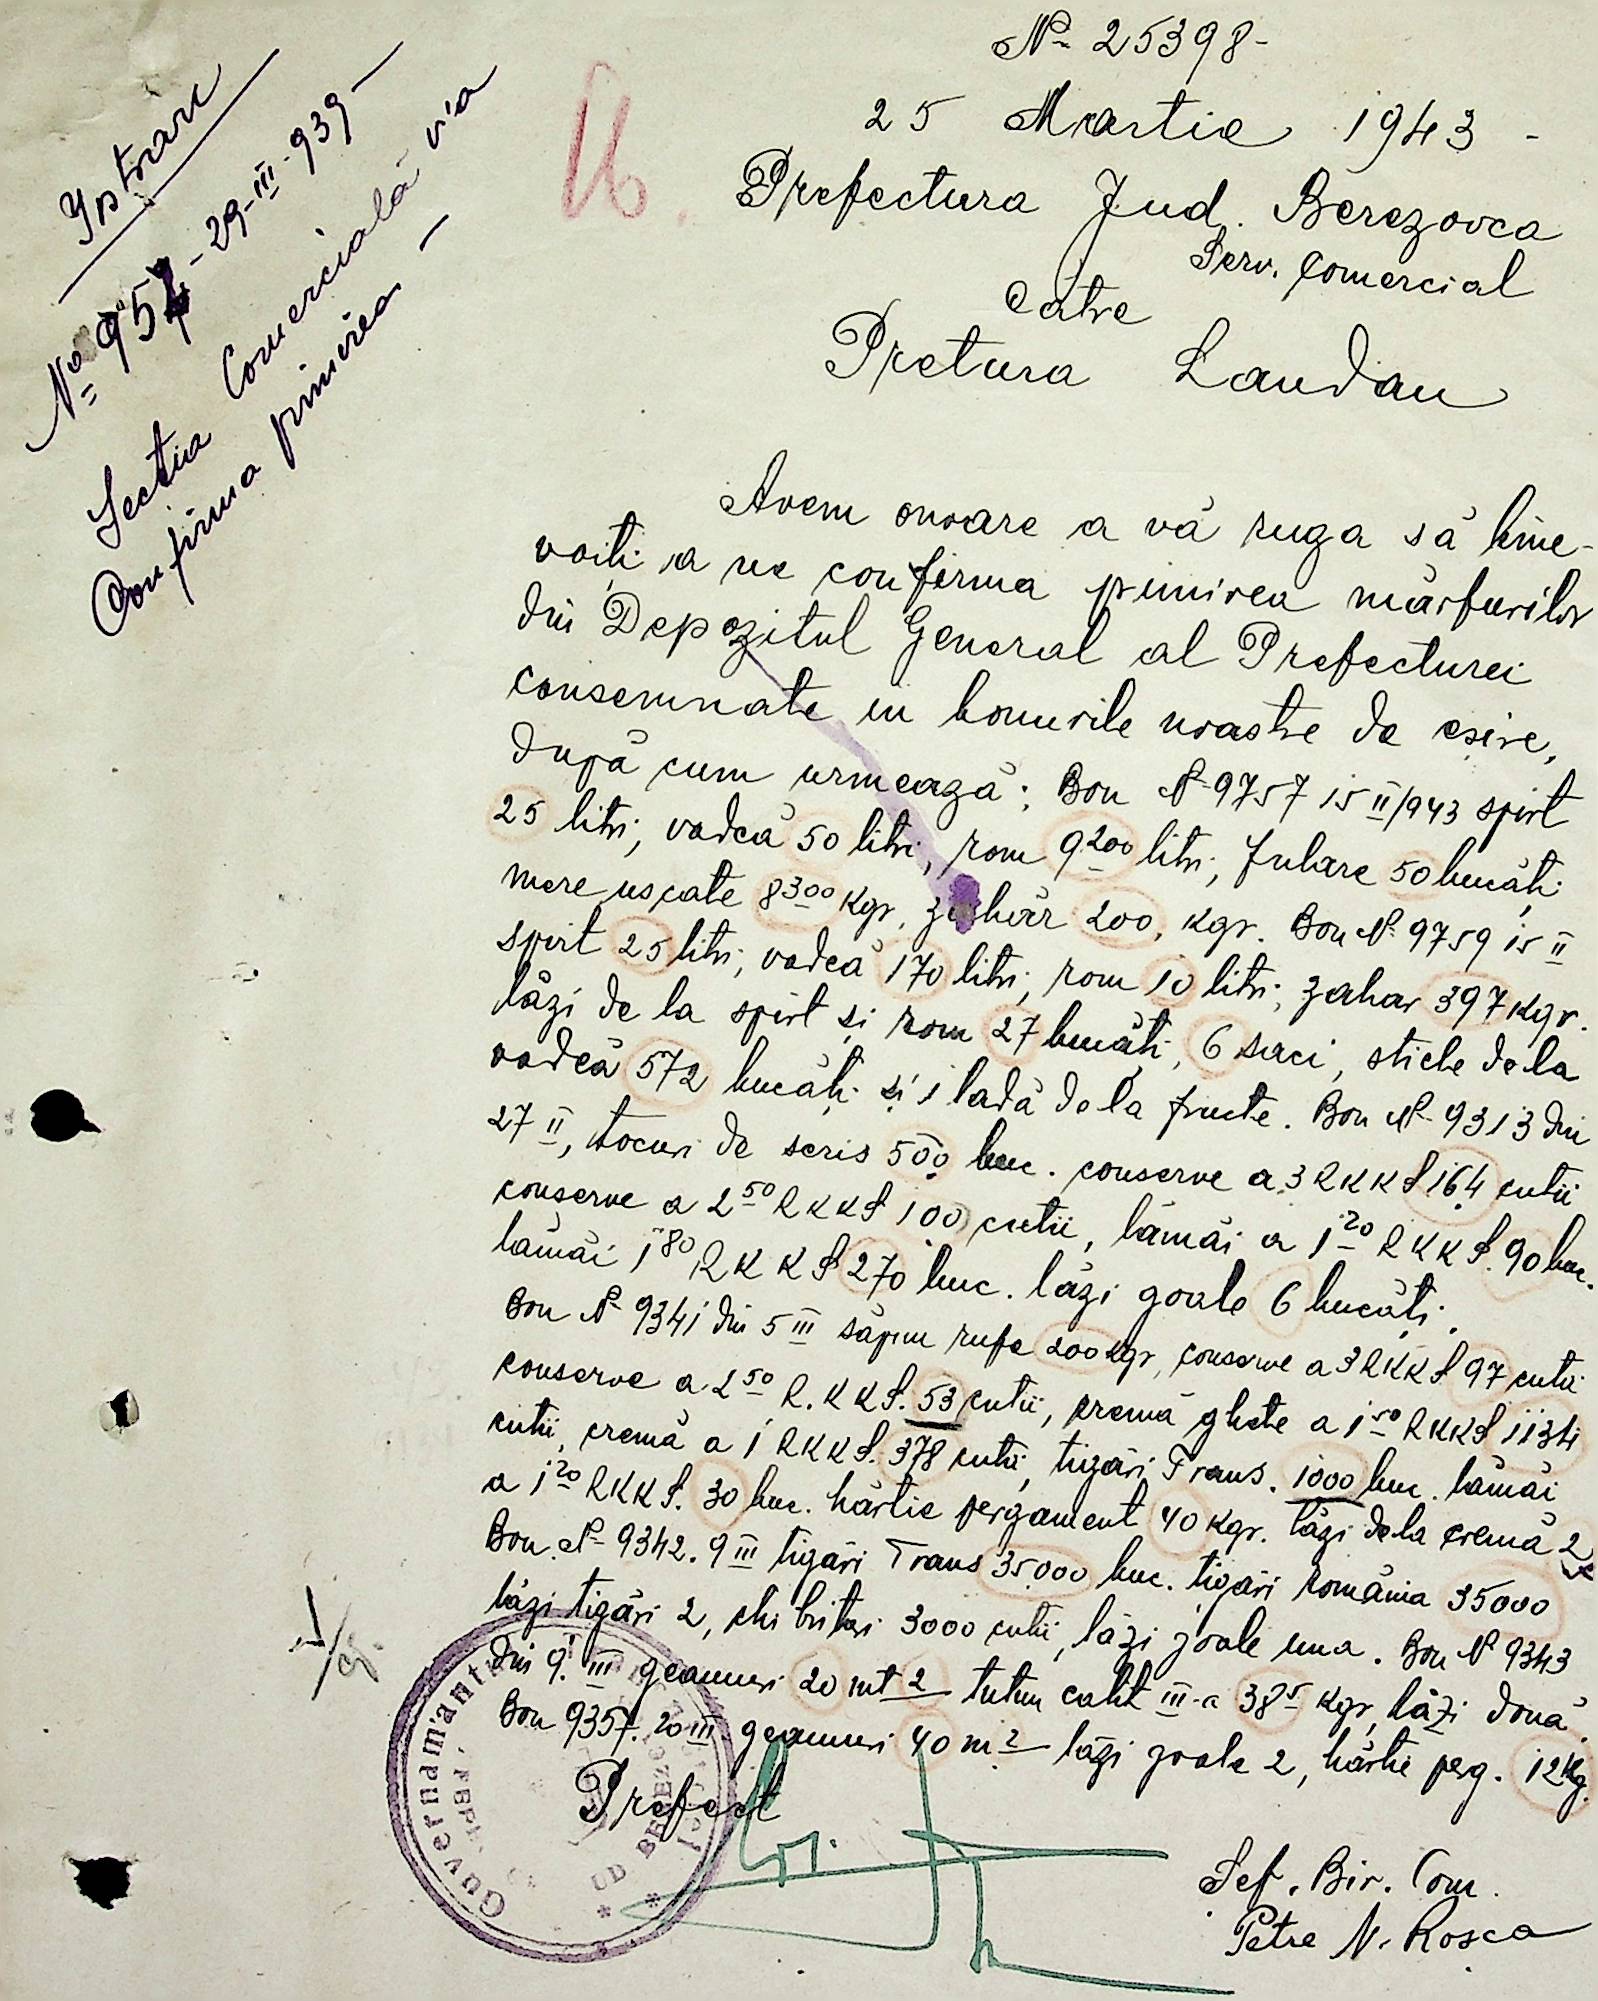 No 25398-
25 Martie 1943 -
Prefectura Jud. Berezovca
Serv. Comercial
Catre
Pretura Landau
No 957 - 29-III-939 -
Sectia Comercială v'a
Confirma primirea -
16.
Avem onoare a vă ruga să bine-
voiți a ne confirma primirea mărfurilor
din Depozitul General al Prefecturei
consemnate in bonurile noastre de esire,
după cum urmează: Bon No 9757 15 II/943 spirt
25 litri, vodcă 50 litri, rom 9200 litri, fulare 50 bucăți
mere uscate 8300 kgr, zahăr 200, kgr. Bon No 9759 15 II
spirt 25 litri, vodcă 170 litri, rom 10 litri, zahar 397 kgr.
lăzi de la spirt și rom 27 bucăți, 6 saci, sticle de la
vodcă 572 bucăți și 1 ladă de la fructe. Bon No 9313 din
27 II, tocuri de scris 500 buc. conserve a 3 RKKS 164 cutii
conserve a 2 50 RKKS 100 cutii, lămâi a 1 20 RKKS. 90 buc.
lămâi 1 80 RKKS 270 buc. lăzi goale 6 bucăți.
Bon No 9341 din 5 III săpun rufe 200 kgr, conserve a 3 RKKS 97 cutii
conserve a 2 50 R.KKS. 53 cutii, cremă ghete a 1 50 RKKS 1134
cutii, cremă a 1 RKKS. 378 cutii, țigări Trans. 1000 buc. lămâi
a 1 20 RKKS. 30 buc. hărtie pergament 40 kgr. lăzi de la cremă 2
Bon No 9342. 9 III țigări Trans 35.000 buc. țigări românia 35000
lăzi țigări 2, chibrituri 3000 cutii, lăzi goale una. Bon No 9343
din 9. III geamuri 20 mt 2 tutun calit III-a 38 5 kgr, lăzi două
Bon 9357. 20 III geamuri 40 m 2 lăzi goale 2, hărtie perg. 12 kg.
Prefect
Guvernământul
BEREZ
Șef. Bir. Com.
Petre N. Rosca